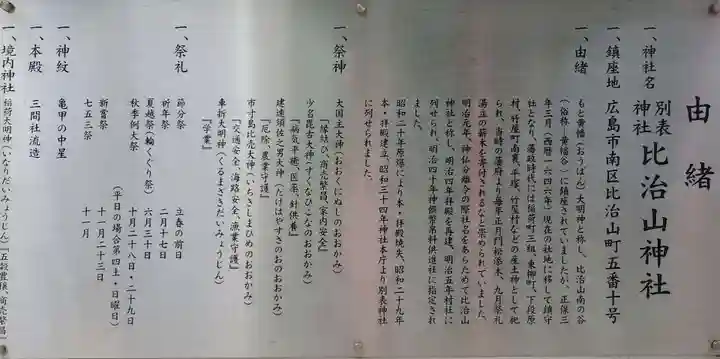 由緒
一、神社名 別表神社 比治山神社
一、鎮座地 広島市南区比治山町五番十号
一、由緒
もと黄幡（おうばん）大明神と称し、比治山南の谷
（俗称―黄幡谷）に鎮座されていましたが、正保三
年三月（西暦一六四六年）現在の社地に移して鎮守
社となり、藩政時代には稲荷町三組、東柳町、下段原
村、竹屋町南裏、平塚、竹屋村などの産土神として祀
られ、当時の藩府より毎年正月門松添木、九月祭礼
湯立の薪木を寄付されるなど崇められていました。
明治元年、神仏分離の際社名をあらためて比治山
神社と称し、明治四年拝殿を再建、明治五年村社に
列せられ、明治四十年神饌幣帛料供進社に指定され
ました。
昭和二十年原爆により本・拝殿焼失、昭和二十九年
本・拝殿建立、昭和三十四年神社本庁より別表神社
に列せられました。
一、祭神
大国主大神（おおくにぬしのおおかみ）
『縁結び、商売繁昌、家内安全』
少名毘古大神（すくなひこなのおおかみ）
『病気平癒、医薬、針供養』
建速須佐之男大神（たけはやすさのおのおおかみ）
『厄除、農業守護』
市寸島比売大神（いちきしまひめのおおかみ）
『交通安全、海路安全、漁業守護』
車折大明神（くるまざきだいみょうじん）
『学業』
一、祭礼
節分祭 立春の前日
祈年祭 二月十七日
夏越祭（輪くぐり祭） 六月三十日
秋季例大祭 十月二十八日・二十九日
（平日の場合第四土・日曜日）
新嘗祭 十一月二十三日
七五三祭 十一月
一、神紋 亀甲の中星
一、本殿 三間社流造
一、境内神社 稲荷大明神（いなりだいみょうじん）『五穀豊穣、商売繁昌』